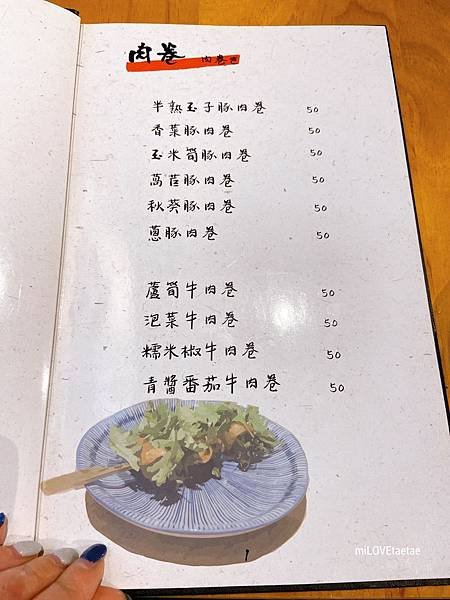 肉卷 肉卷き
半熟玉子豚肉卷 50
香菜豚肉卷 50
玉米筍豚肉卷 50
萵苣豚肉卷 50
秋葵豚肉卷 50
蔥豚肉卷 50
蘆筍牛肉卷 50
泡菜牛肉卷 50
糯米椒牛肉卷 50
青醬番茄牛肉卷 50
1
miLOVEtaetae